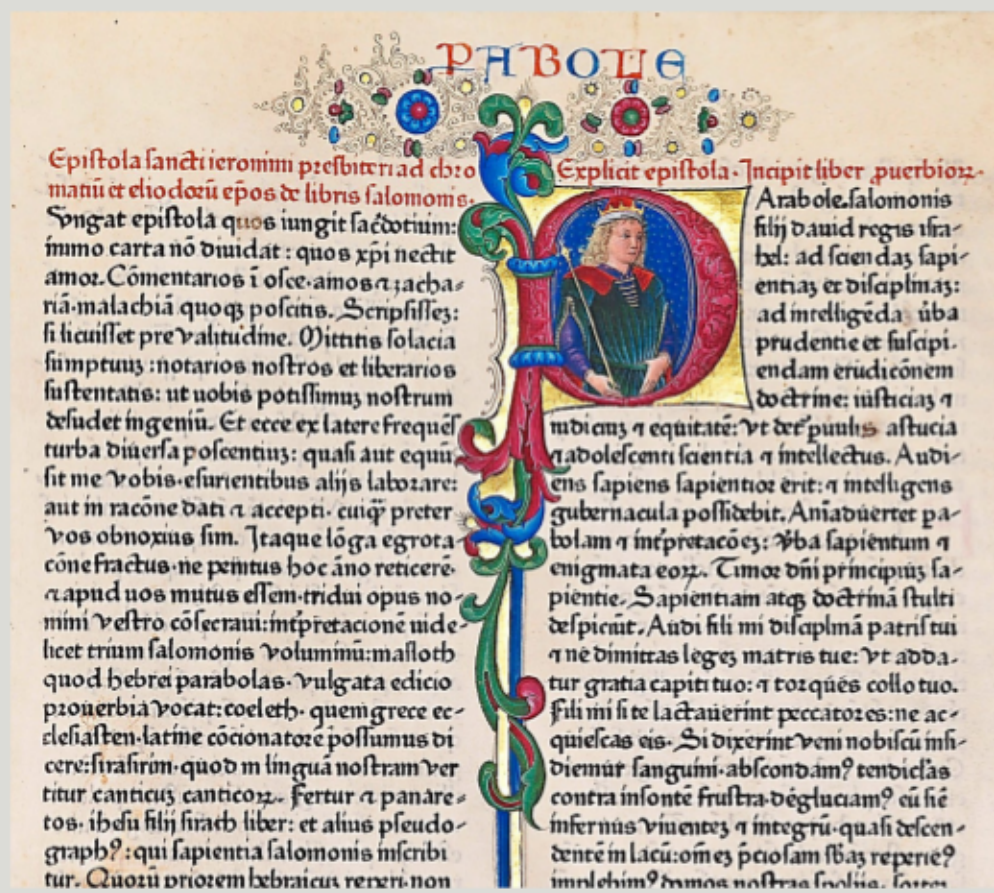 PABOLE
Epistola sancti ieronimi presbiteri ad chro
matiū et eliodorū ep̄os de libris salomonis.
Vngat epistola quos iungit sac̄dotium:
immo carta nō diuidat: quos xp̄i nectit
amor. Cōmentarios ī osee. amos ⁊ zacha-
riā. malachiā quoqꝫ poscitis. Scripsissеꝫ:
si licuisset pre valitudine. Mittitis solacia
sumptuuꝫ: notarios nostros et librarios
sustentatis: ut uobis potissimuꝫ nostrum
desudet ingeniū. Et ecce ex latere frequēs
turba diuersa poscentiuꝫ: quasi aut equū
sit me vobis. esurientibus alijs laborare:
aut in racōne dati ⁊ accepti. cuiqꝫ preter
vos obnoxius sim. Itaque lōga egrota-
cōne fractus. ne penitus hoc āno reticerē.
⁊ apud uos mutus essem. tridui opus no-
mini vestro cōsecraui: int̄pretacionē uide-
licet trium salomonis voluminū: masloth
quod hebrei parabolas. vulgata edicio
prouerbia vocat: coeleth. quem grece ec-
clesiasten. latine cōcionatorē possumus di
cere: sirasirim. quod in linguā nostram ver
titur canticuꝫ canticoꝝ. Fertur ⁊ panare-
tos. ihesu filij sirach liber: et alius pseudo-
graphꝰ: qui sapientia salomonis inscribi
tur. Quorū priorem hebraicuꝫ reperi. non
Explicit epistola. Incipit liber ꝓuerbioꝝ.
Arabole. salomonis
filij dauid regis isra-
hel: ad sciendaꝫ sapi-
entiaꝫ et disciplinaꝫ:
ad intelligēda u̅ba
prudentie et suscipi.
endam erudicōnem
doctrine: iusticiaꝫ ⁊
iudiciuꝫ ⁊ equitatē: vt det̄ ꝑuulis astucia
⁊ adolescenti scientia ⁊ intellectus. Audi-
ens sapiens sapientior erit: ⁊ intelligens
gubernacula possidebit. Aniaduertet pa-
bolam ⁊ int̄pretacōeꝫ: v̄ba sapientum ⁊
enigmata eoꝝ. Timor dn̄i principiuꝫ sa-
pientie. Sapientiam atqꝫ doctrinā stulti
despiciūt. Audi fili mi disciplinā patris tui
⁊ ne dimittas legeꝫ matris tue: vt adda-
tur gratia capiti tuo: ⁊ torques collo tuo.
Fili mi si te lactauerint peccatores: ne ac-
quiescas eis. Si dixerint veni nobiscū insi-
diemur sanguini. abscondamꝰ tendiclas
contra insontē frustra. degluciamꝰ eū sic̄
infernus viuenteꝫ ⁊ integrū. quasi descen-
dentē in lacū: om̄eꝫ p̄ciosam sb̄aꝫ reperieꝰ
implebimꝰ domos nostras spolijs.